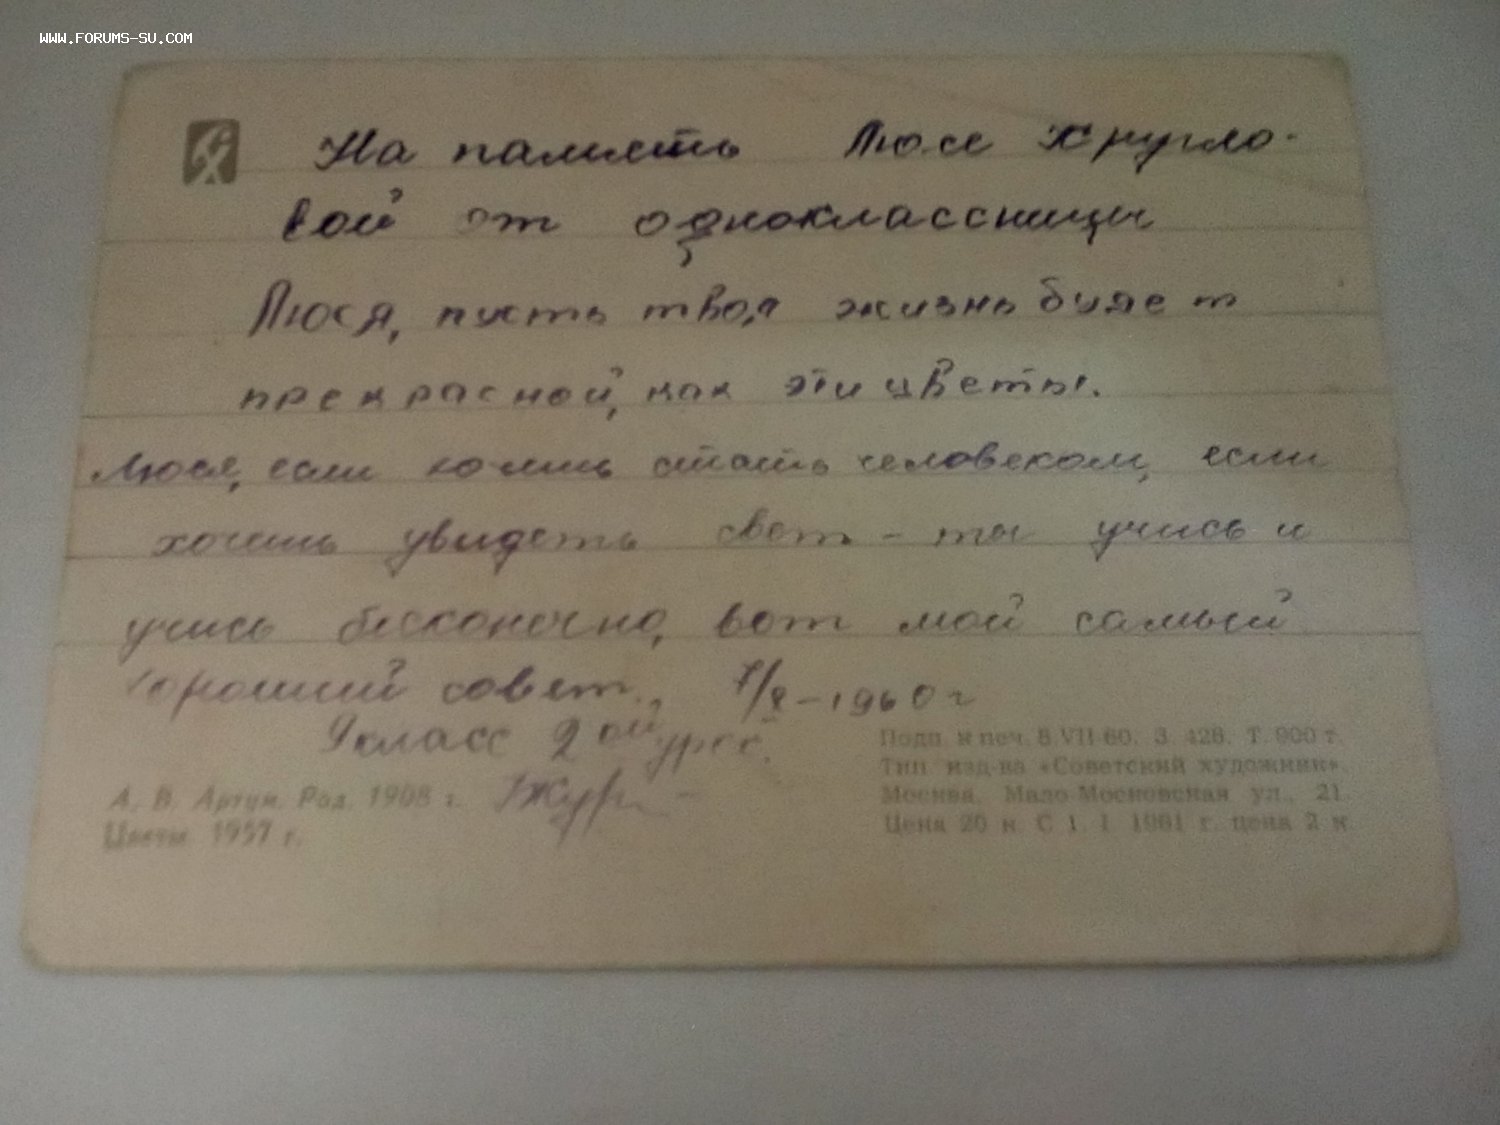 WWW.FORUMS-SU.COM
На память Люсе Кругло-
вой от одноклассницы
Люся, пусть твоя жизнь будет
прекрасной, как эти цветы.
Люся, если хочешь стать человеком, если
хочешь увидеть свет - ты учись и
учись бесконечно, вот мой самый
хороший совет. 7/X-1960 г
9 класс 2ой урок.
Подп. к печ. 8.VII 60. З. 426. Т. 900 т.
Тип. изд-ва «Советский художник».
Москва, Мало-Московская ул., 21.
Цена 20 к. С 1. I. 1961 г. цена 2 к.
А. В. Артум. Род. 1908 г.
Цветы. 1957 г.